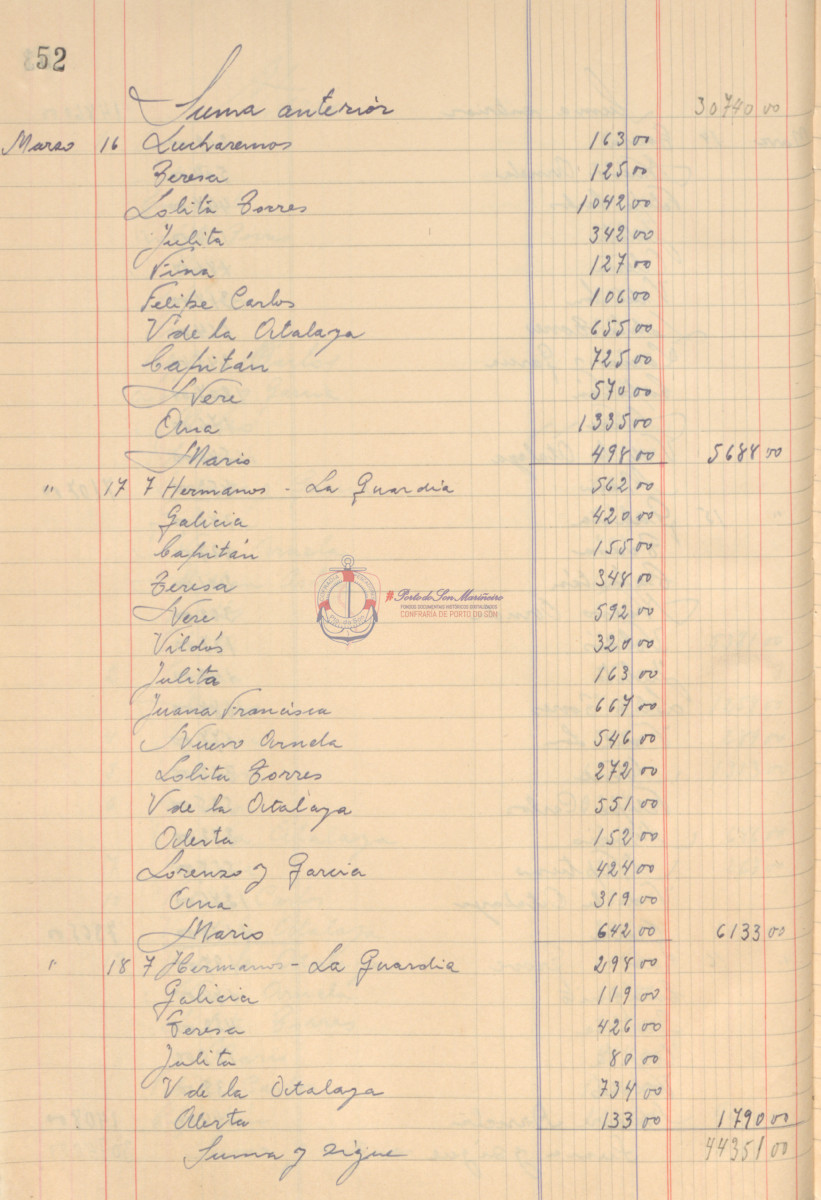 52
Suma anterior 30740 00
Marzo 16 Lucharemos 163 00
Teresa 125 00
Lolita Torres 1042 00
Julita 342 00
Nina 127 00
Felipe Carlos 106 00
V de la Atalaya 655 00
Capitán 725 00
Nere 570 00
Ana 1335 00
Mario 498 00 5688 00
" 17 7 Hermanos - La Guardia 562 00
Galicia 420 00
Capitán 155 00
Teresa 348 00
Nere 592 00
Porto do Son Mariñeiro
FONDOS DOCUMENTAIS HISTÓRICOS DIXITALIZADOS
CONFRARÍA DE PORTO DO SON
Vildós 320 00
Julita 163 00
Juana Francisca 667 00
Nuevo Arnela 546 00
Lolita Torres 272 00
V de la Atalaya 551 00
Alerta 152 00
Lorenzo y García 424 00
Ana 319 00
Mario 642 00 6133 00
" 18 7 Hermanos - La Guardia 298 00
Galicia 119 00
Teresa 426 00
Julita 80 00
V de la Atalaya 734 00
Alerta 133 00 1790 00
Suma y sigue 44351 00